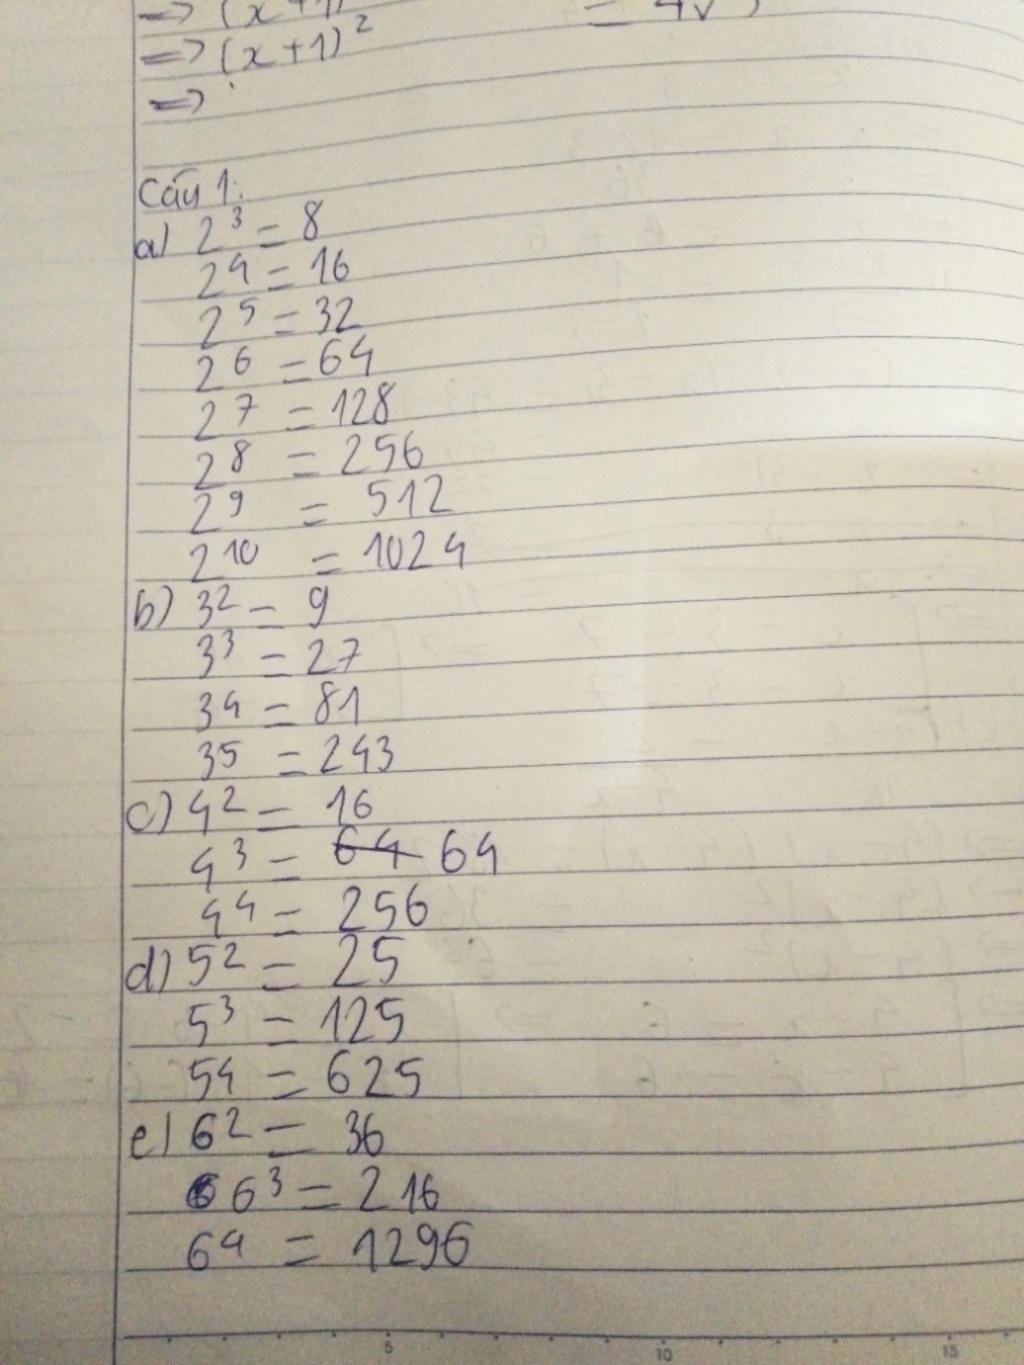 => (x+1)
=> (x+1)²
=>
Câu 1:
a) 2³ = 8
2⁴ = 16
2⁵ = 32
2⁶ = 64
2⁷ = 128
2⁸ = 256
2⁹ = 512
2¹⁰ = 1024
b) 3² = 9
3³ = 27
3⁴ = 81
3⁵ = 243
c) 4² = 16
4³ = 64 64
4⁴ = 256
d) 5² = 25
5³ = 125
5⁴ = 625
e) 6² = 36
6 6³ = 216
6⁴ = 1296
5 10 15